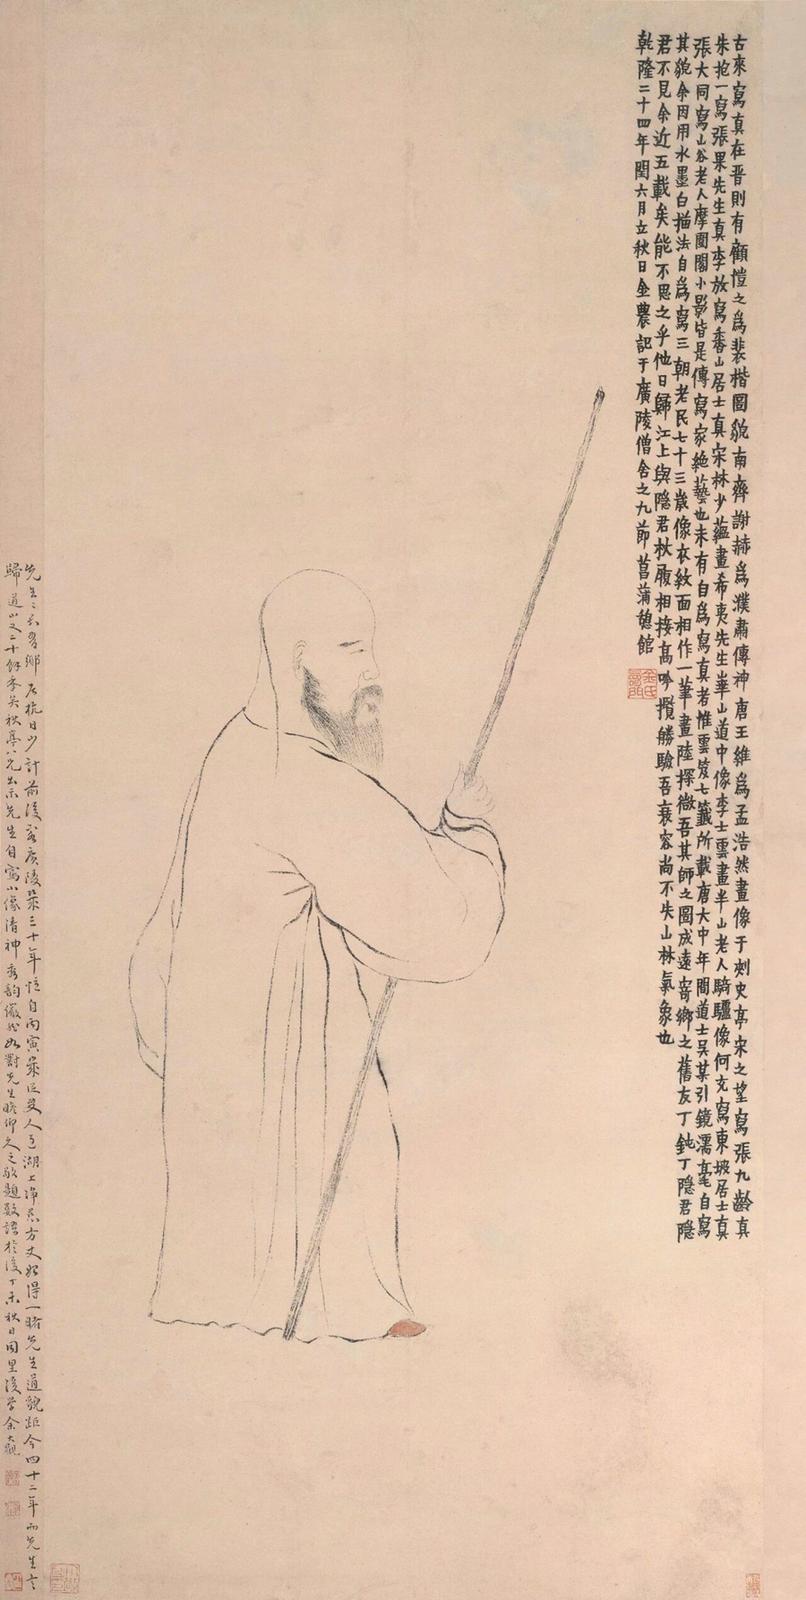 古來寫真在晉則有顧愷之為裴楷圖貌南齊謝赫為濮肅傳神唐王維為孟浩然畫像于刺史亭宋之望寫張九齡真
朱抱一寫張果先生真李放寫香山居士真宋林少蘊畫希夷先生華山道中像李士雲畫半山老人騎驢像何充寫東坡居士真
張大同寫山谷老人摩圍閣小影皆是傳寫家絕藝也未有自為寫真者惟雲笈七籤所載唐大中年間道士吳某引鏡濡毫自寫
其貌余因用水墨白描法自為寫三朝老民七十三歲像衣紋面相作一筆畫陸探微吾其師之圖成遠寄鄉之舊友丁鈍丁隱君隱
君不見余近五載矣能不思之乎他日歸江上與隱君杖履相接高吟攬勝驗吾衰容尚不失山林氣象也
乾隆二十四年閏六月立秋日金農記于廣陵僧舍之九節菖蒲憩館
金氏壽門
先生與吾鄉居杭日少計前後客廣陵幾三十年憶自丙寅歲從人至湖上淨慈方丈始得一睹先生道貌距今四十二年而先生之
歸道山又二十餘年矣秋亭八兄出示先生自寫小像清神秀韻儼然如對先生瞻仰久之敬題數語於後丁未秋日同里後學余大觀